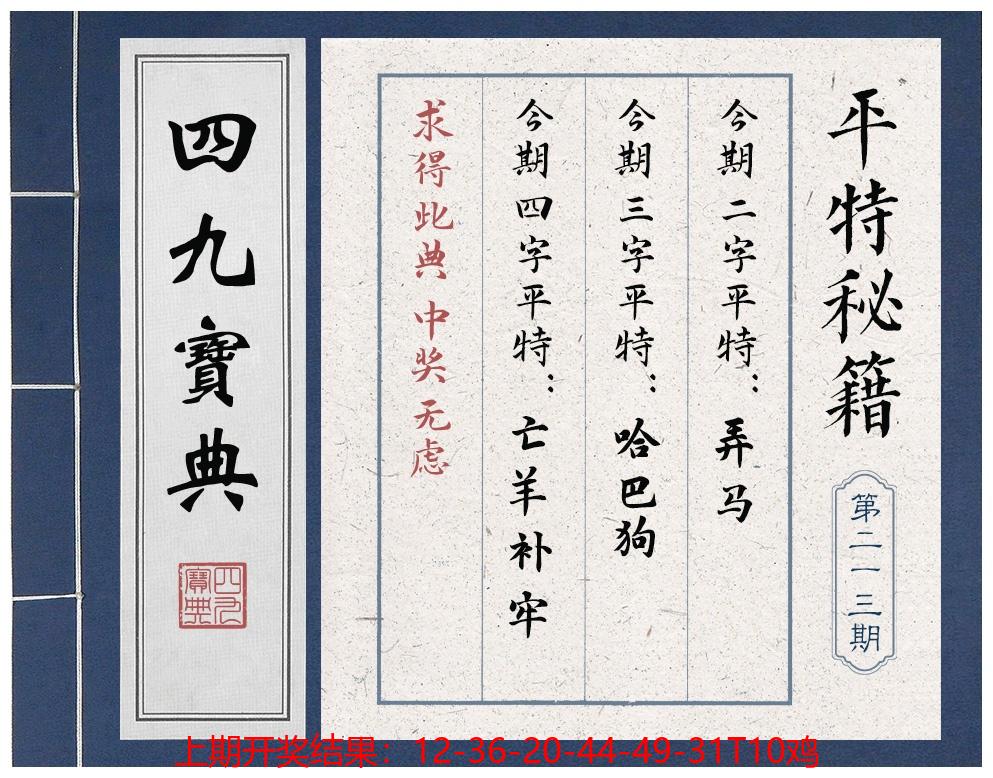 平特秘籍
第二一三期
今期二字平特：弄马
今期三字平特：哈巴狗
今期四字平特：亡羊补牢
求得此典 中奖无虑
四九寶典
四九寶典
上期开奖结果：12-36-20-44-49-31T10鸡